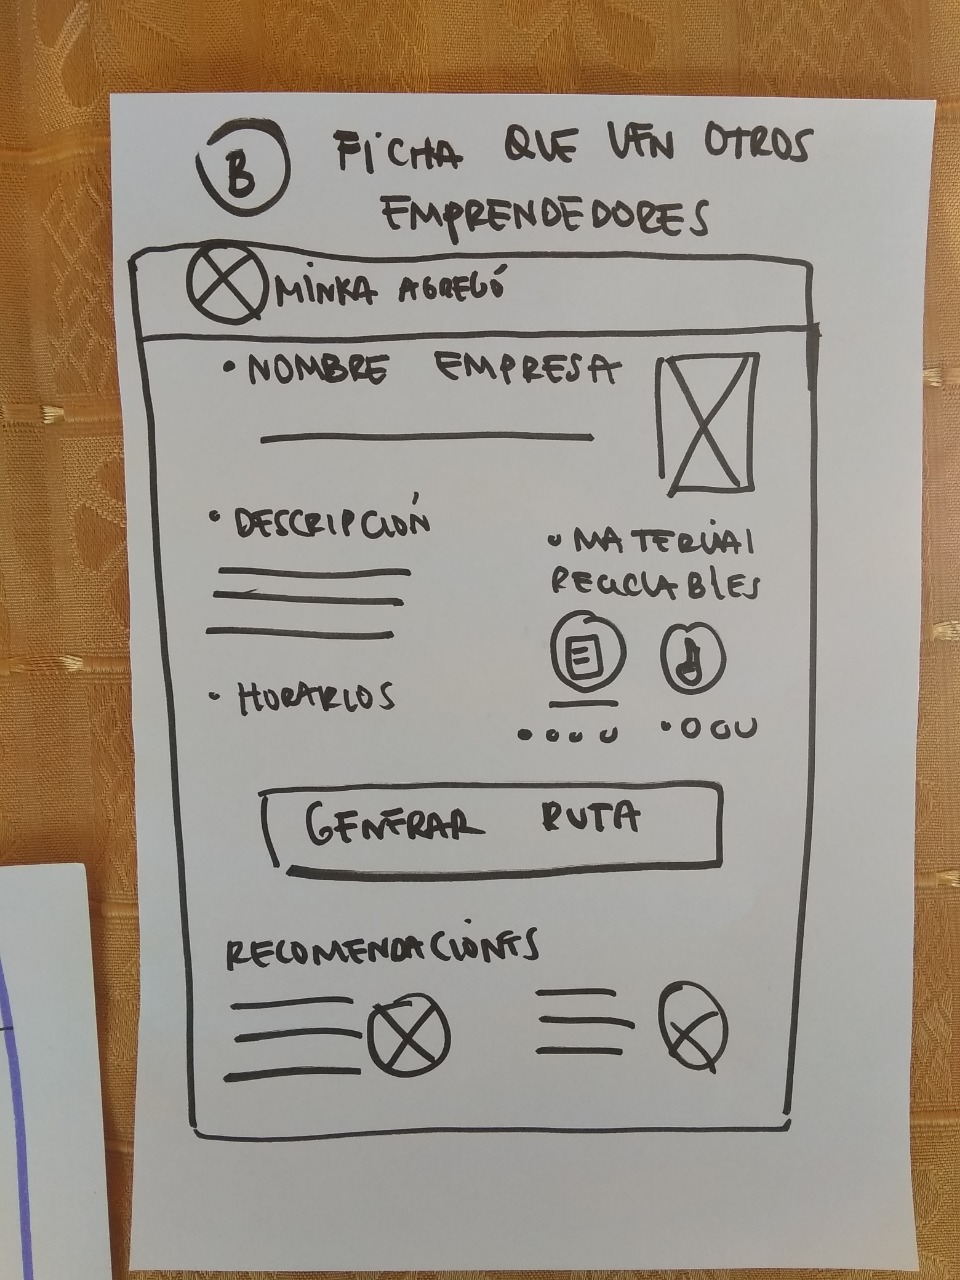 B
FICHA QUE VEN OTROS
EMPRENDEDORES
MINKA AGREGÓ
• NOMBRE EMPRESA
• DESCRIPCIÓN
• MATERIAL
RECICLABLES
• HORARIOS
GENERAR RUTA
RECOMENDACIONES